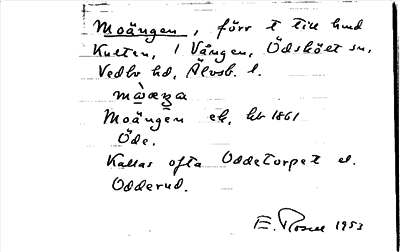 Moängen, förr t till hmd
Kullen, i Vången, Ödskölt sn,
Vedbo hd, Älvsb. l.
Moängen ek. kb 1861
Öde.
Kallas ofta Oddetorpet el.
Odderud.
E. Rosell 1953